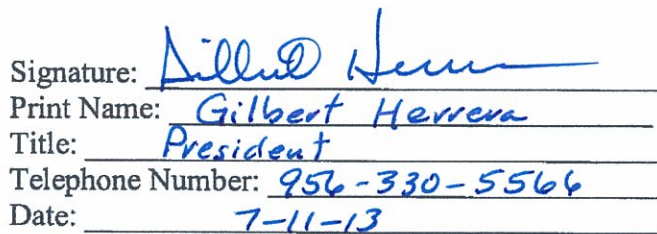 Signature: Gilbert Herrera
Print Name: Gilbert Herrera
Title: President
Telephone Number: 956-330-5566
Date: 7-11-13